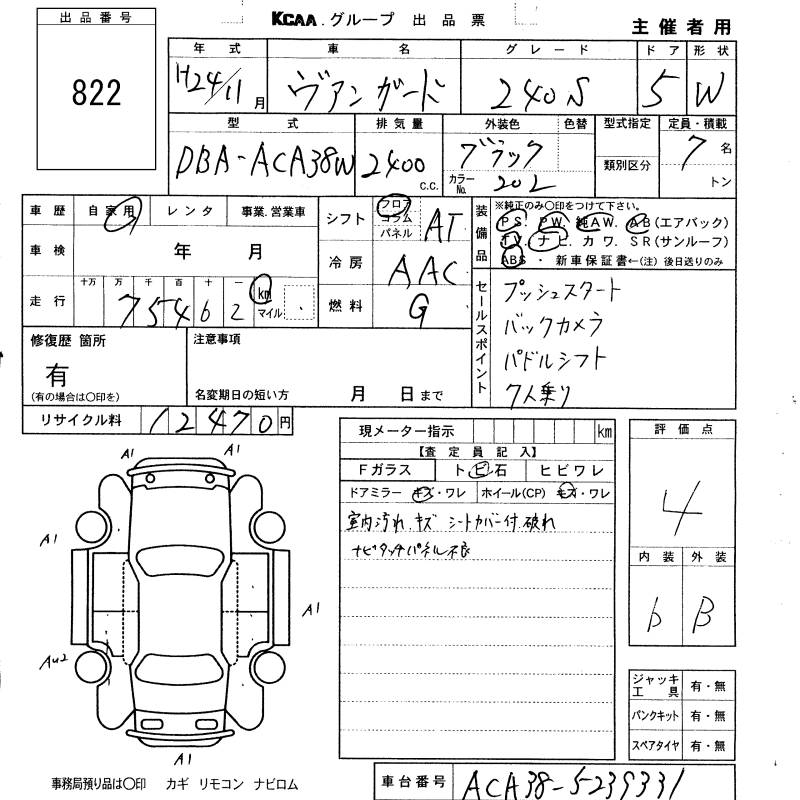 KCAA.グループ 出品票
主催者用
出品番号
822
年式 車名 グレード ドア 形状
H24/11月 ヴァンガード 240S 5 W
型式 排気量 外装色 色替 型式指定 定員・積載
DBA-ACA38W 2400 c.c. ブラック 類別区分 7名
カラーNo. 202 トン
車歴 自家用 レンタ 事業.営業車
車検 年 月
走行 十万 万 千 百 十 一 km
75462 マイル
シフト フロア コラム パネル AT
冷房 AAC
燃料 G
装備品
※純正のみ〇印をつけて下さい。
PS. PW. 純AW. AB(エアバック)
TV. ナビ. カワ. SR(サンルーフ)
ABS ・ 新車保証書←(注)後日送りのみ
セールスポイント
プッシュスタート
バックカメラ
パドルシフト
7人乗り
修復歴 箇所
有
(有の場合は〇印を)
注意事項
名変期日の短い方 月 日まで
リサイクル料 12470円
現メーター指示 km
【査定員記入】
Fガラス トビ石 ヒビワレ
ドアミラー キズ・ワレ ホイール(CP) キズ・ワレ
室内汚れ.キズ シートカバー付.破れ
ナビタッチパネル不良
評価点
4
内装 外装
b B
A1 A1
A1
A1
AU2
A1
ジャッキ工具 有・無
パンクキット 有・無
スペアタイヤ 有・無
事務局預り品は〇印 カギ リモコン ナビロム
車台番号 ACA38-5239331